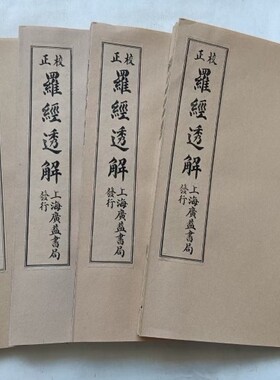 校正
羅經透解
上海廣益書局
發行
校正
羅經透解
上海廣益書局
發行
校正
羅經透解
上海廣益書局
發行